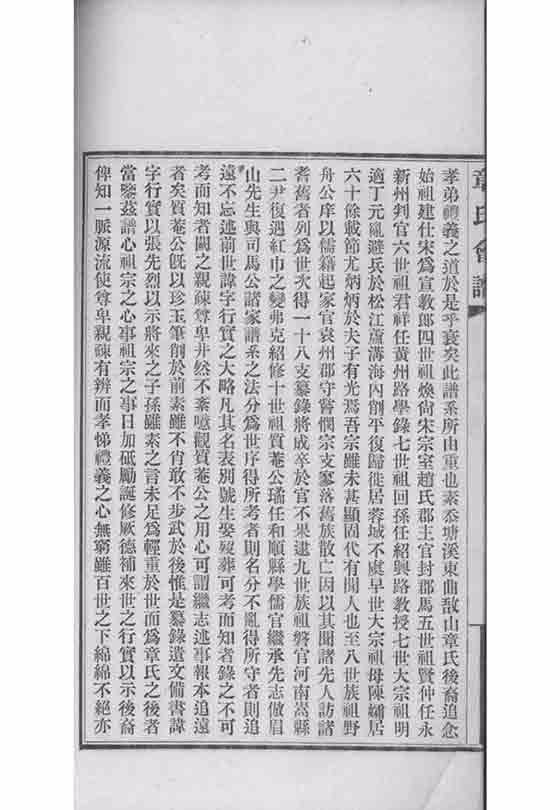 章氏會譜
孝弟禮義之道於是乎衰矣此譜系所由重也素忝塘溪東曲敔山章氏後裔追念
始祖建仕宋爲宣敎郎四世祖煥尙宋宗室趙氏郡主官封郡馬五世祖賢仲任永
新州判官六世祖君祥任黃州路學錄七世祖回孫任紹興路敎授七世大宗祖明
適丁元亂避兵於松江蘆溝海內削平復歸徙居蓉城不處早世大宗祖母陳孀居
六十餘載節尤炳炳於夫子有光焉吾宗雖未甚顯固代有聞人也至八世族祖野
舟公庠以儒籍起家官袁州郡守嘗憫宗支寥落舊族散亡因以其聞諸先人訪諸
耆舊者列爲世次得一十八支纂錄將成卒於官不果逮九世族祖磐官河南嵩縣
二尹復遇紅巾之變弗克紹修十世祖質菴公璚任和順縣學儒官繼承先志倣眉
山先生與司馬公諸家譜系之法分爲世序得所考者則名分不亂得所守者則追
遠不忘述前世諱字行實之大略凡其名表別號生娶歿葬可考而知者錄之不可
考而知者闕之親疎尊卑井然不紊噫觀質菴公之用心可謂繼志述事報本追遠
者矣質菴公旣以珍玉筆削於前素雖不肖敢不步武於後惟是纂錄遺文備書諱
字行實以張先烈以示將來之子孫雖素之言未足爲輕重於世而爲章氏之後者
當鑒茲譜心祖宗之心事祖宗之事日加砥勵誕修厥德補來世之行實以示後裔
俾知一脈源流使尊卑親疎有辨而孝悌禮義之心無窮雖百世之下綿綿不絕亦